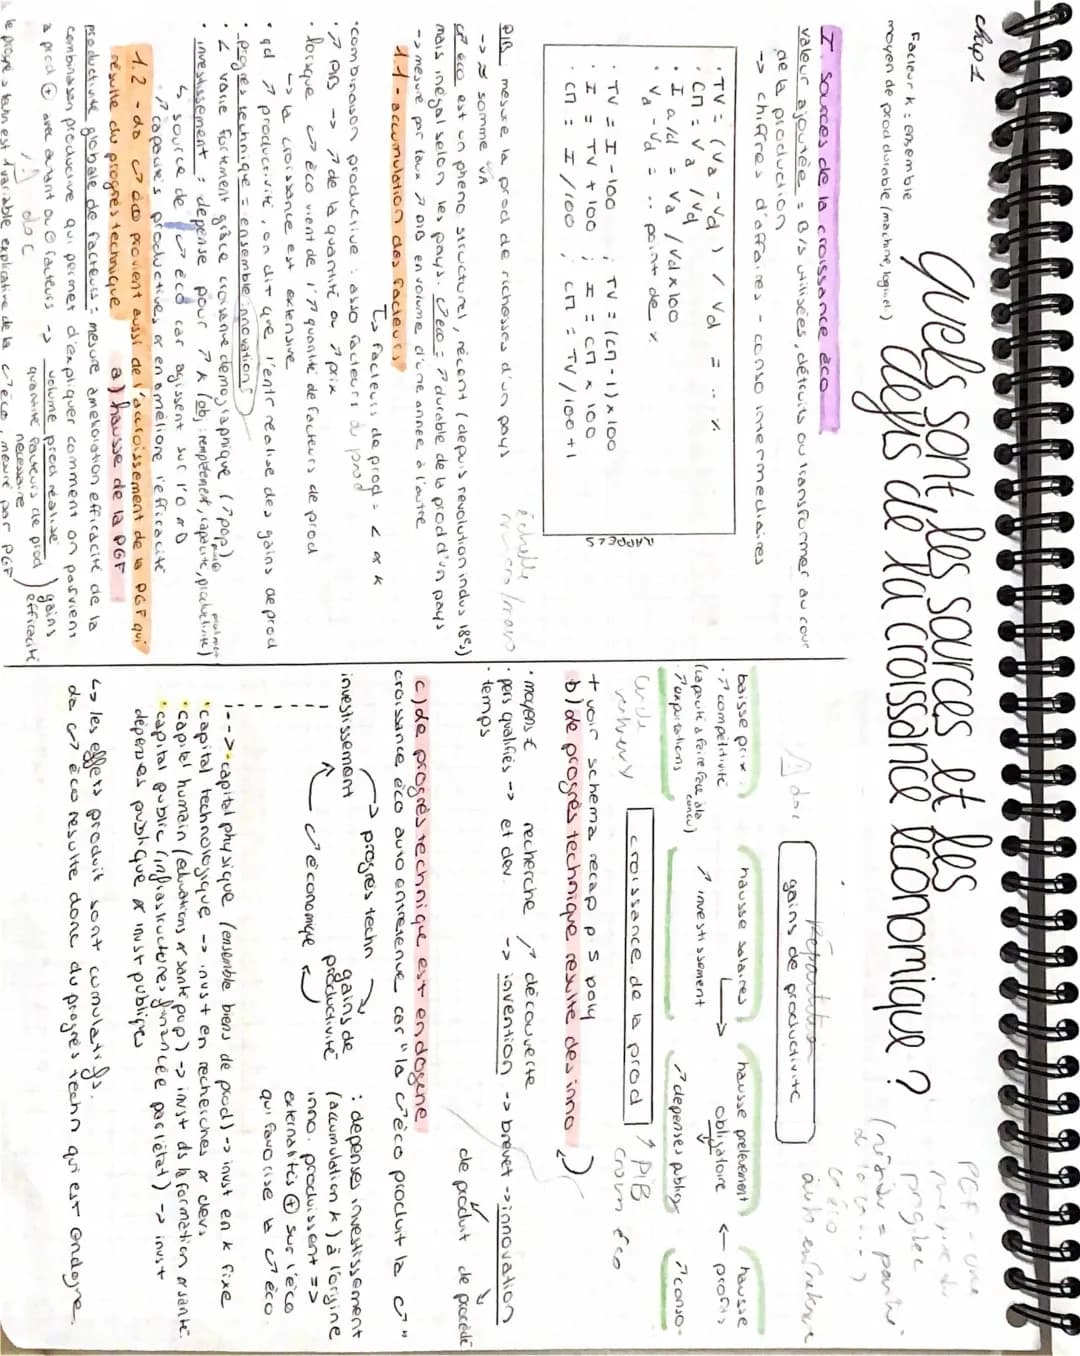 chap 1
Quels sont les sources et les
défis de la croissance économique ?
Facteur k : ensemble
moyen de prod durable (machine, logiciel)
I. sources de la croissance éco
valeur ajoutée = B/s utilisées, détruits ou transformer au cour
de la production
-> chiffre d'affaires - conso intermediaires
RAPPELS
. TV = (Va - Vd) / Vd = .. %
. CM = Va / Vd
. I a/d = Va / Vd x 100
. Va - Vd = .. point de %
. TV = I - 100 ; TV = (CM - 1) x 100
. I = TV + 100 ; I = CM x 100
. CM = I / 100 ; CM = TV / 100 + 1
échelle
PIB : mesure la prod de richesses d'un pays
-> ≈ somme VA
c↗ éco est un pheno structurel, récent (depuis revolution indus 18e s)
mais inégal selon les pays. c↗ éco = ↗ durable de la prod d'un pays
-> mesure par taux ↗ PIB en volume d'une année à l'autre
1.1 - accumulation des facteurs
↳ facteurs de prod = L et K
. combinaison productive : asso facteurs de prod
. ↗ PIB -> ↗ de la quantité ou ↗ prix
. lorsque c↗ éco vient de l'↗ quantité de facteurs de prod
-> la croissance est extensive
. qd ↗ productivité, on dit que l'entr réalise des gains de prod
. progrès technique = ensemble innovation
. L varie fortement grâce croissance demographique (↗ pop)
. investissement : dépense pour ↗ K (obj : remplacement, capacité, productivité)
↳ source de c↗ éco car agissent sur l'O et D
↗ capacités productives et en améliore l'efficacité
1.2 - la c↗ éco provient aussi de l'accroissement de la PGF qui
résulte du progrès technique
a) hausse de la PGF
productivité globale de facteurs : mesure amélioration efficacité de la
combinaison productive qui permet d'expliquer comment on parvient
a prod ⊕ avec autant ou ⊖ facteurs -> volume prod réalisé / quantité facteurs de prod nécessaire } gains efficacité
⚠ doc
le progrès techn est 1 variable explicative de la c↗ éco, mesuré par PGF
PGF - une
mesure du
progrès
(résidu = partie
de la c↗ ... )
c↗ éco
auto entretenue
⚠ doc
Répartition
gains de productivité
baisse prix
hausse salaires
hausse prelevement
obligatoire
hausse
profits
. ↗ compétitivité
(capacité à faire face à la
concu)
. ↗ exportations
↗ investissement
↗ dépenses publiq
↗ conso.
croissance de la prod
↗ PIB
croiss éco
+ voir schema recap p 5 poly
b) le progrès technique resulte des inno
. moyens €
. pers qualifiés -> recherche et dev. ↗ découverte -> invention -> brevet -> innovation
. temps
de produit de procédé
c) le progrès technique est endogène
croissance éco auto entretenue car "la c↗ éco produit la c↗"
investissement
progrès techn
gains de
productivité
c↗ économique
: dépenses investissement
(accumulation K) à l'origine
inno. produissent =>
externalités ⊕ sur l'éco
qui favorise la c↗ éco.
---> . capital physique (ensemble biens de prod) -> invst en k fixe
. capital technologique -> invst en recherches et devs
. capital humain (educations et sante pop) -> invst ds la formation et sante.
. capital public (infrastructures financée par l'état) -> invst
dépenses publique et invst publiques
↳ les effets produit sont cumulatifs.
la c↗ éco resulte donc du progrès techn qui est endogne.